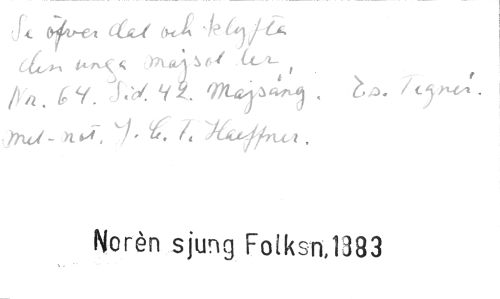 Se öfver dal och klyfta
den unga majsol ler,
Nr. 64. Sid. 42. Majsång. Es. Tegnér.
mel-not. J. C. F. Haeffner.
Norèn sjung Folksn,1883